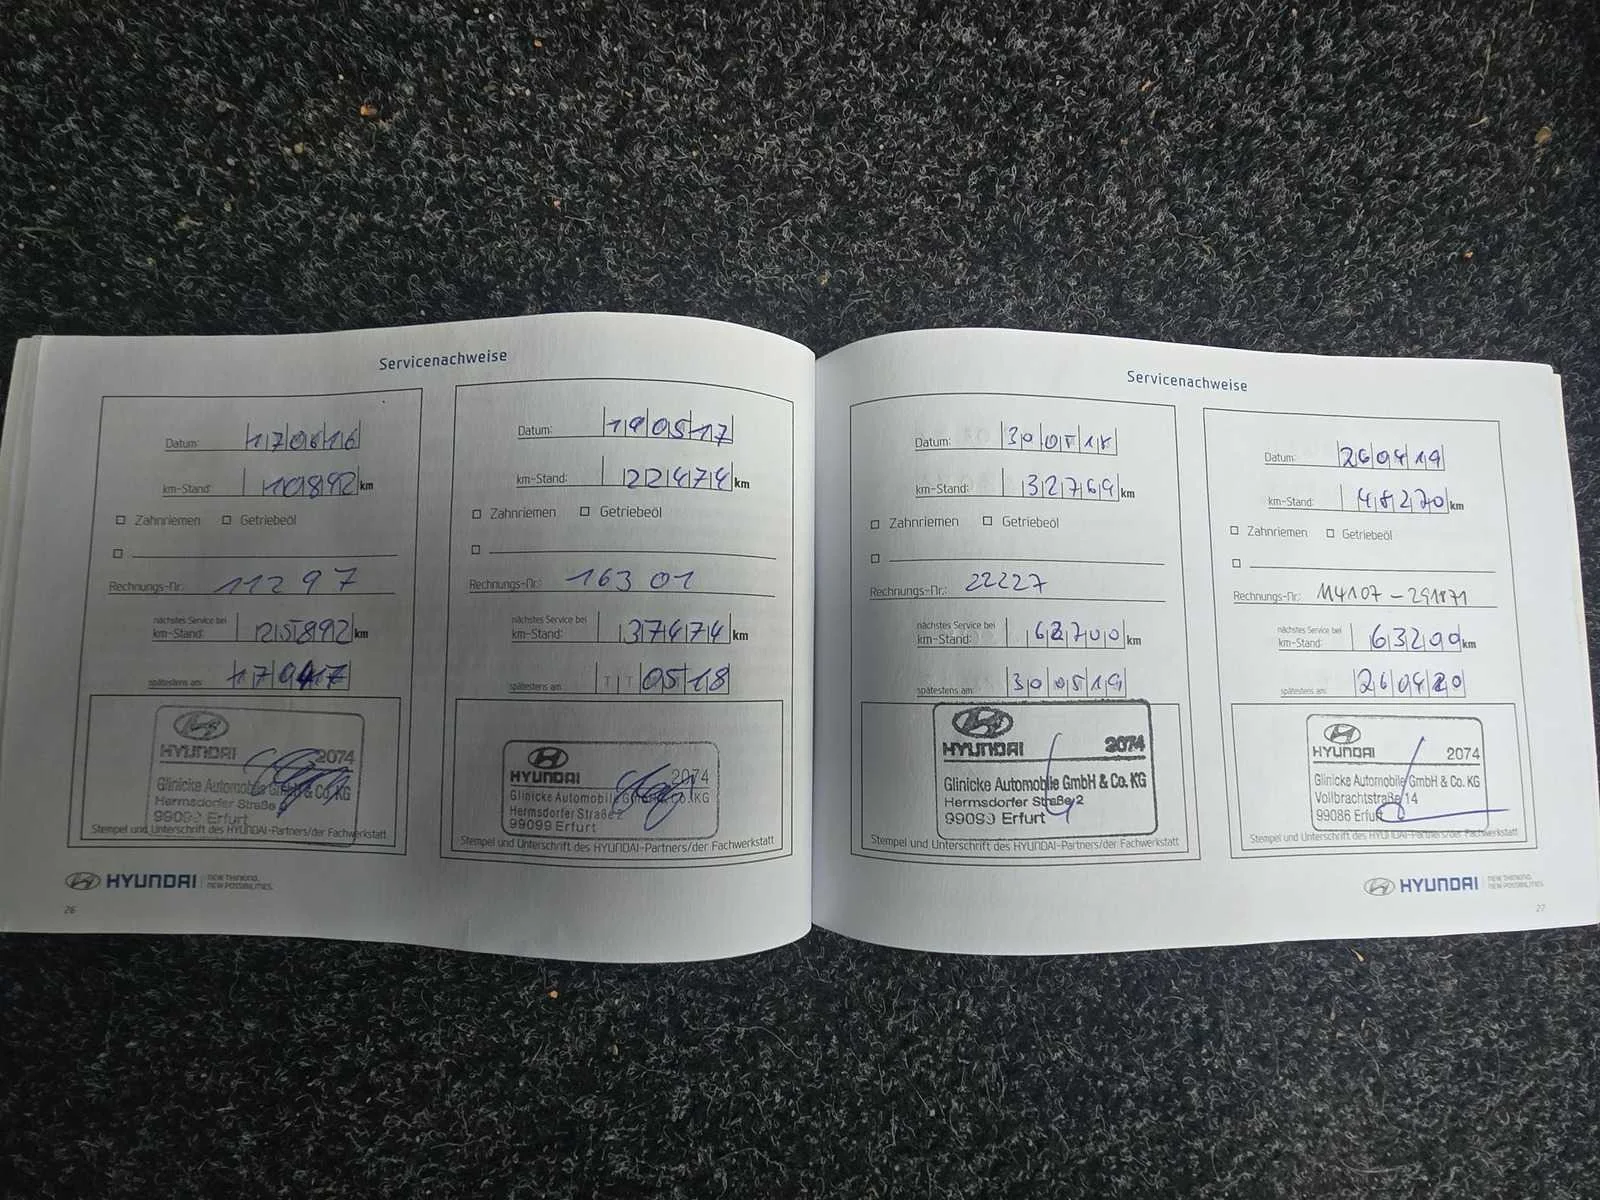 Servicenachweise
Datum: 170616
km-Stand: 10892 km
Zahnriemen Getriebeöl
Rechnungs-Nr.: 11297
nächstes Service bei
km-Stand: 25892 km
spätestens am:
HYUNDAI 2074
Glinicke Automobile GmbH & Co. KG
Hermsdorfer Straße 2
99099 Erfurt
Stempel und Unterschrift des HYUNDAI-Partners/der Fachwerkstatt
Datum: 190517
km-Stand: 22474 km
Zahnriemen Getriebeöl
Rechnungs-Nr.: 16301
nächstes Service bei
km-Stand: 37474 km
spätestens am: TT 0518
HYUNDAI 2074
Glinicke Automobile GmbH & Co. KG
Hermsdorfer Straße 2
99099 Erfurt
Stempel und Unterschrift des HYUNDAI-Partners/der Fachwerkstatt
HYUNDAI NEW THINKING.
NEW POSSIBILITIES.
26
Servicenachweise
Datum: 300518
km-Stand: 32769 km
Zahnriemen Getriebeöl
Rechnungs-Nr.: 22227
nächstes Service bei
km-Stand: km
spätestens am: 300519
HYUNDAI 2074
Glinicke Automobile GmbH & Co. KG
Hermsdorfer Straße 2
99099 Erfurt
Stempel und Unterschrift des HYUNDAI-Partners/der Fachwerkstatt
Datum: 260419
km-Stand: 48270 km
Zahnriemen Getriebeöl
Rechnungs-Nr.: 114107-291871
nächstes Service bei
km-Stand: 63200 km
spätestens am: 260420
HYUNDAI 2074
Glinicke Automobile GmbH & Co. KG
Vollbrachtstraße 14
99086 Erfurt
Stempel und Unterschrift des HYUNDAI-Partners/der Fachwerkstatt
HYUNDAI NEW THINKING.
NEW POSSIBILITIES.
27